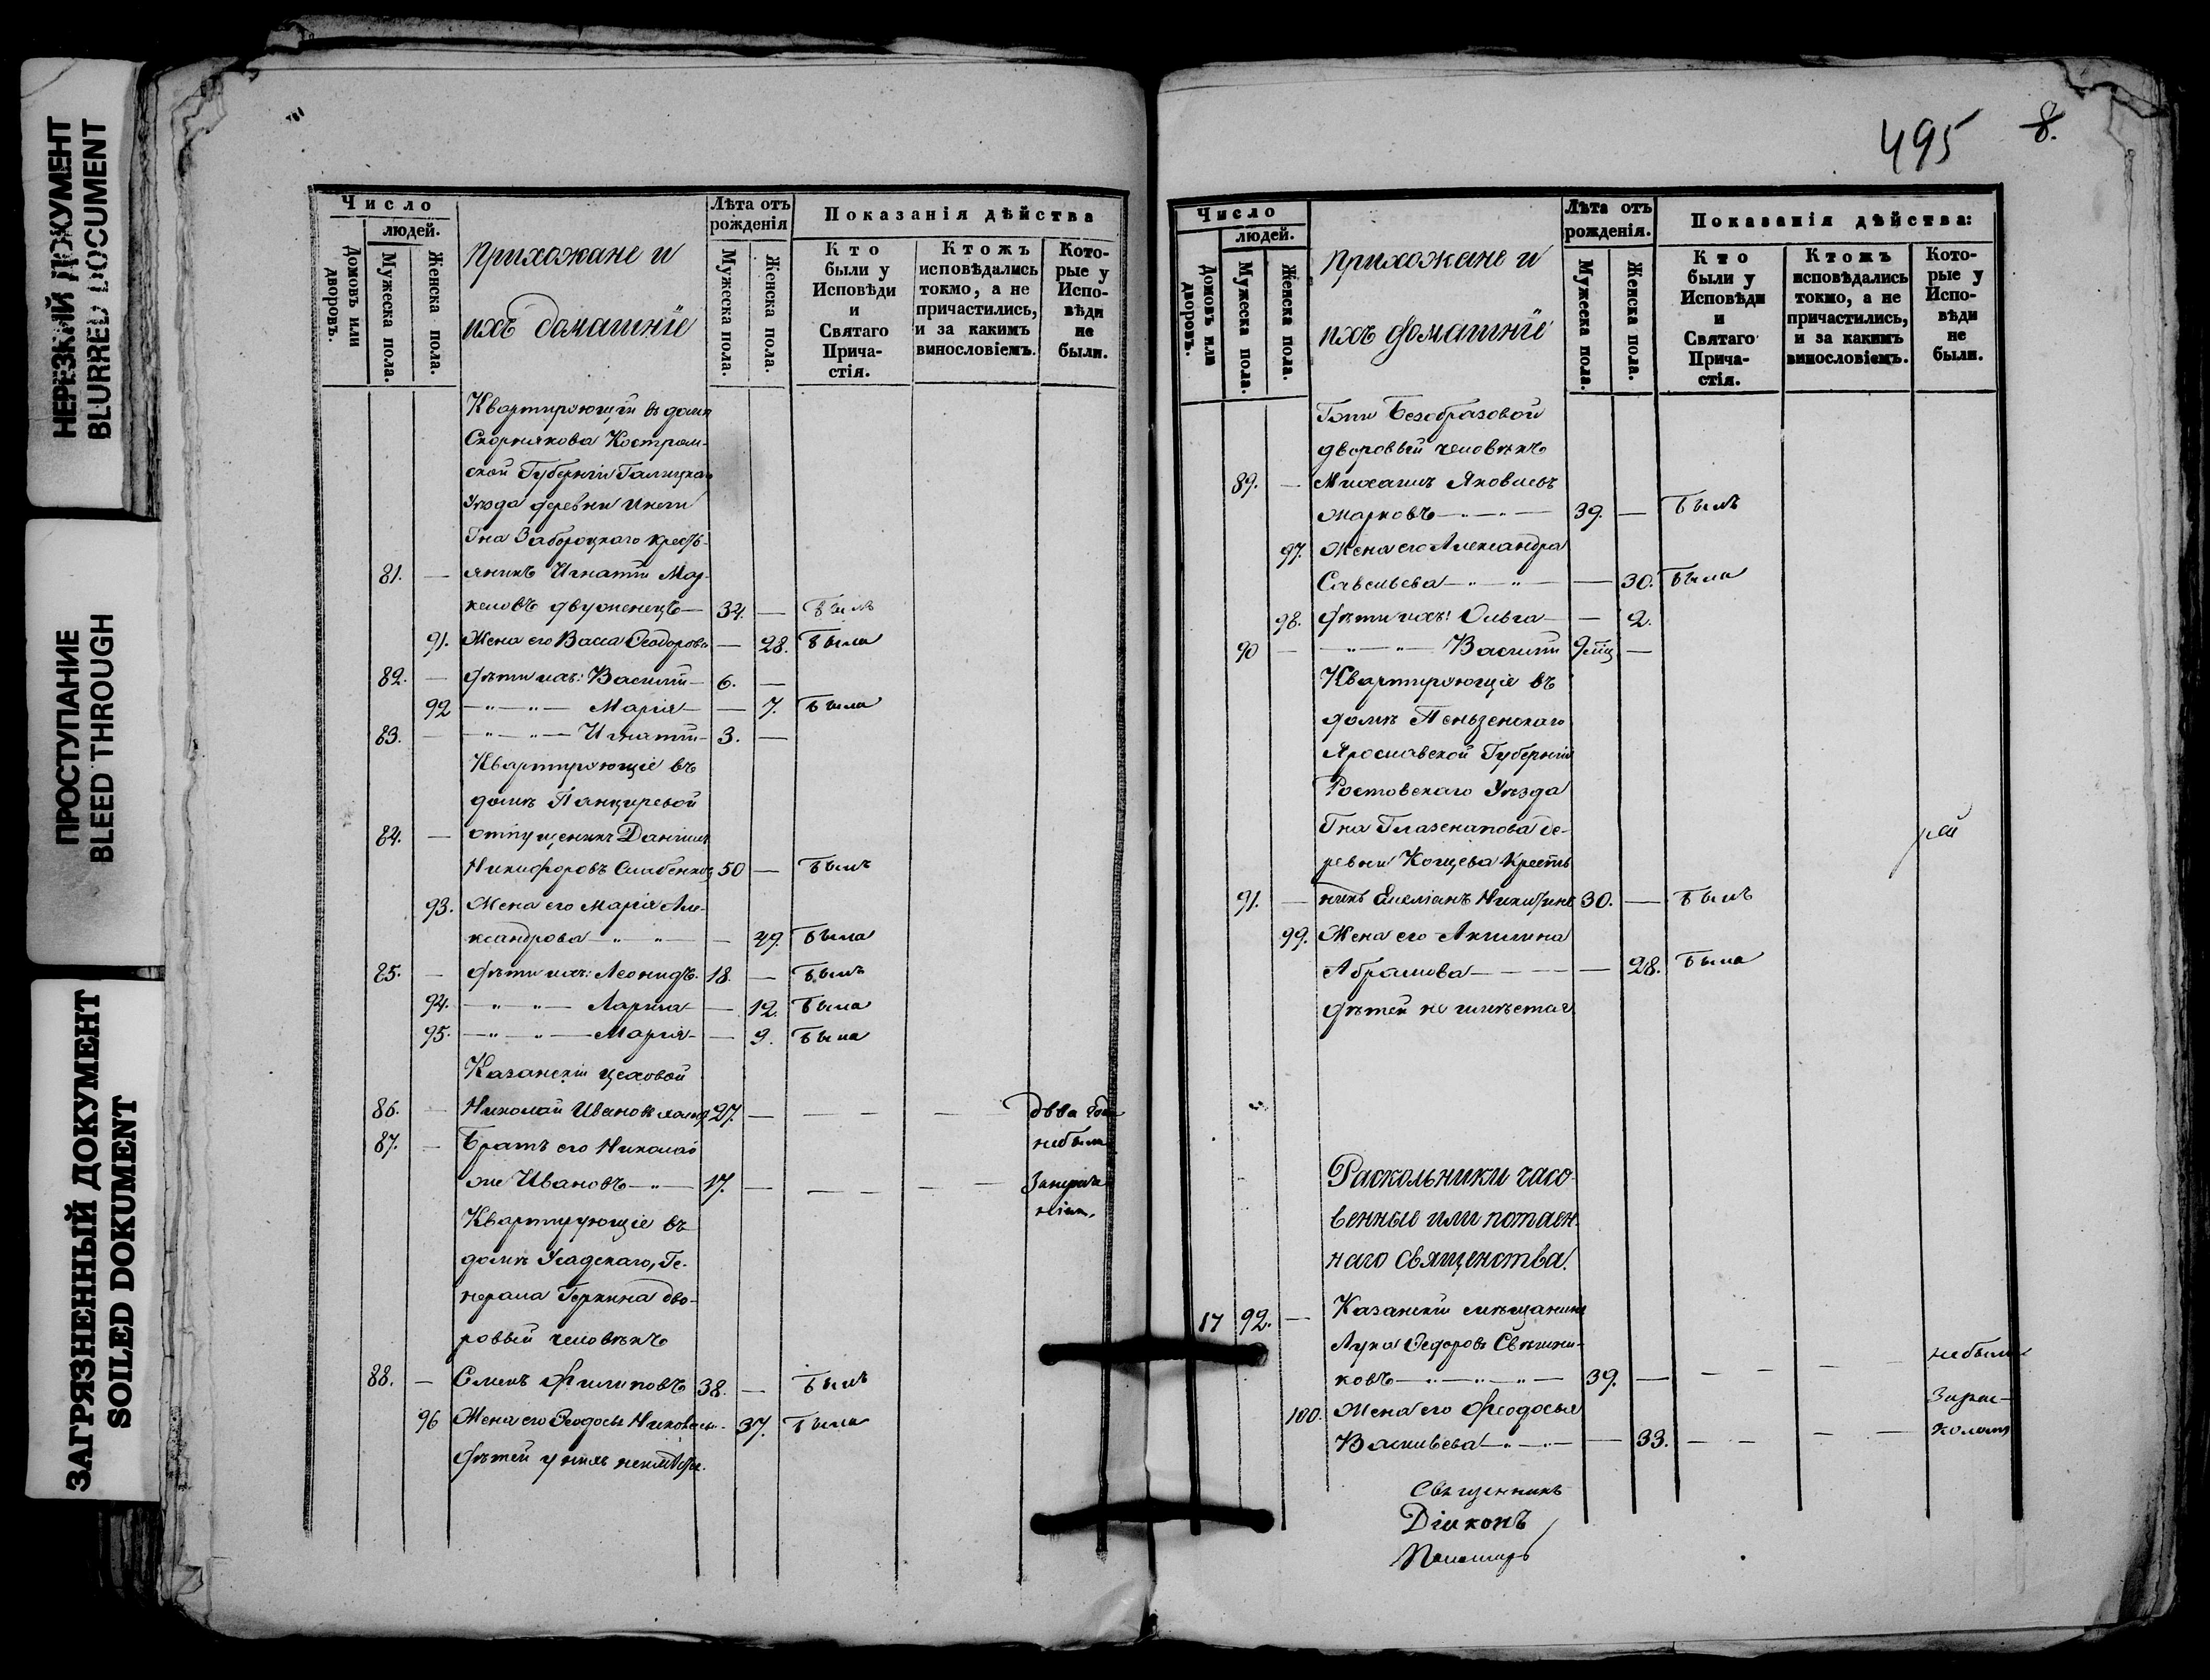 НЕРЕЗКИЙ ДОКУМЕНТ
BLURRED DOCUMENT
ПРОСТУПАНИЕ
BLEED THROUGH
ЗАГРЯЗНЕННЫЙ ДОКУМЕНТ
SOILED DOKUMENT
Число
людей.
Домовъ или дворовъ.
Мужеска пола.
Женска пола.
Прихожане и
ихъ домашніе
Лѣта отъ рожденія
Мужеска пола.
Женска пола.
Показанія дѣйства
Кто были у Исповѣди и Святаго Прича-стія.
Ктожъ исповѣдались токмо, а не причастились, и за какимъ винословіемъ.
Кото-рые у Испо-вѣди не были.
Квартирующіи въ домѣ
Скорнякова Костром-
ской Губерніи Галицкаго
Уѣзда деревни
Гна Забороцкаго кресть-
81. — янинъ Игнатій Мар-
келовъ двуженецъ — 34. — былъ
91. Жена его Васса Ѳеодорова — 28. была
82. — Дѣти ихъ: Василій — 6. —
92 — " — " — Марія — — 7. была
83. — — " — " — Игнатій — 3. —
Квартирующіе въ
домѣ Панциревой
84. — отпущеникъ Даніилъ
Никифоровъ 50 — былъ
93. Жена его Марія Але-
ксандрова — " — " — — 49. была
85. — Дѣти ихъ: Леонидъ. 18. — былъ
94. — " — " — Лариса — — 12. была
95. — " — " — Марія — — 9. была
Казанскій цеховой
86. — Николай Ивановъ 27. — — — — два года
87. — Братъ его Николай небыли
же Ивановъ — " — 17. — — — —
Квартирующіе въ
домѣ Усадскаго, Ге-
нерала Геркина дво-
ровый человѣкъ
88. — Семенъ Филиповъ 38. — былъ
96 Жена его Ѳеодосья 37. была
Дѣтей у нихъ
495 8.
Число
людей.
Домовъ или дворовъ.
Мужеска пола.
Женска пола.
Прихожане и
ихъ домашніе
Лѣта отъ рожденія.
Мужеска пола.
Женска пола.
Показанія дѣйства:
Кто были у Исповѣди и Святаго Прича-стія.
Ктожъ исповѣдались токмо, а не причастились, и за какимъ винословіемъ.
Кото-рые у Испо-вѣди не были.
Гжи Безобразовой
дворовый человѣкъ
89. — Михаилъ Яковлевъ
Марковъ — " — " — 39. — былъ
97. Жена его Александра
Савельева — " — " — — 30. была
98. Дѣти ихъ: Ольга — — 2.
90 — — " — " — Василій 9 мц —
Квартирующіе въ
домѣ Пензенскаго
Ярославской Губерніи
Ростовскаго Уѣзда
Гна Глазенапова де-
ревни Кощева Кресть
91. — нинъ Емеліанъ Никитинъ 30. — былъ
99. Жена его Акилина
Абрамова — — — — — 28. была
Дѣтей не имѣетъ
Раскольники часо-
венные или потаен-
наго священства.
17 92. — Казанскій мѣщанинъ
Лука Ѳедоровъ Свѣшни-
ковъ — " — " — " — 39. — — — — небыли
100. Жена его Феодосья За рас-
Васильева — " — " — — 33. — — — — коломъ
Священникъ
Діаконъ
Пономарь